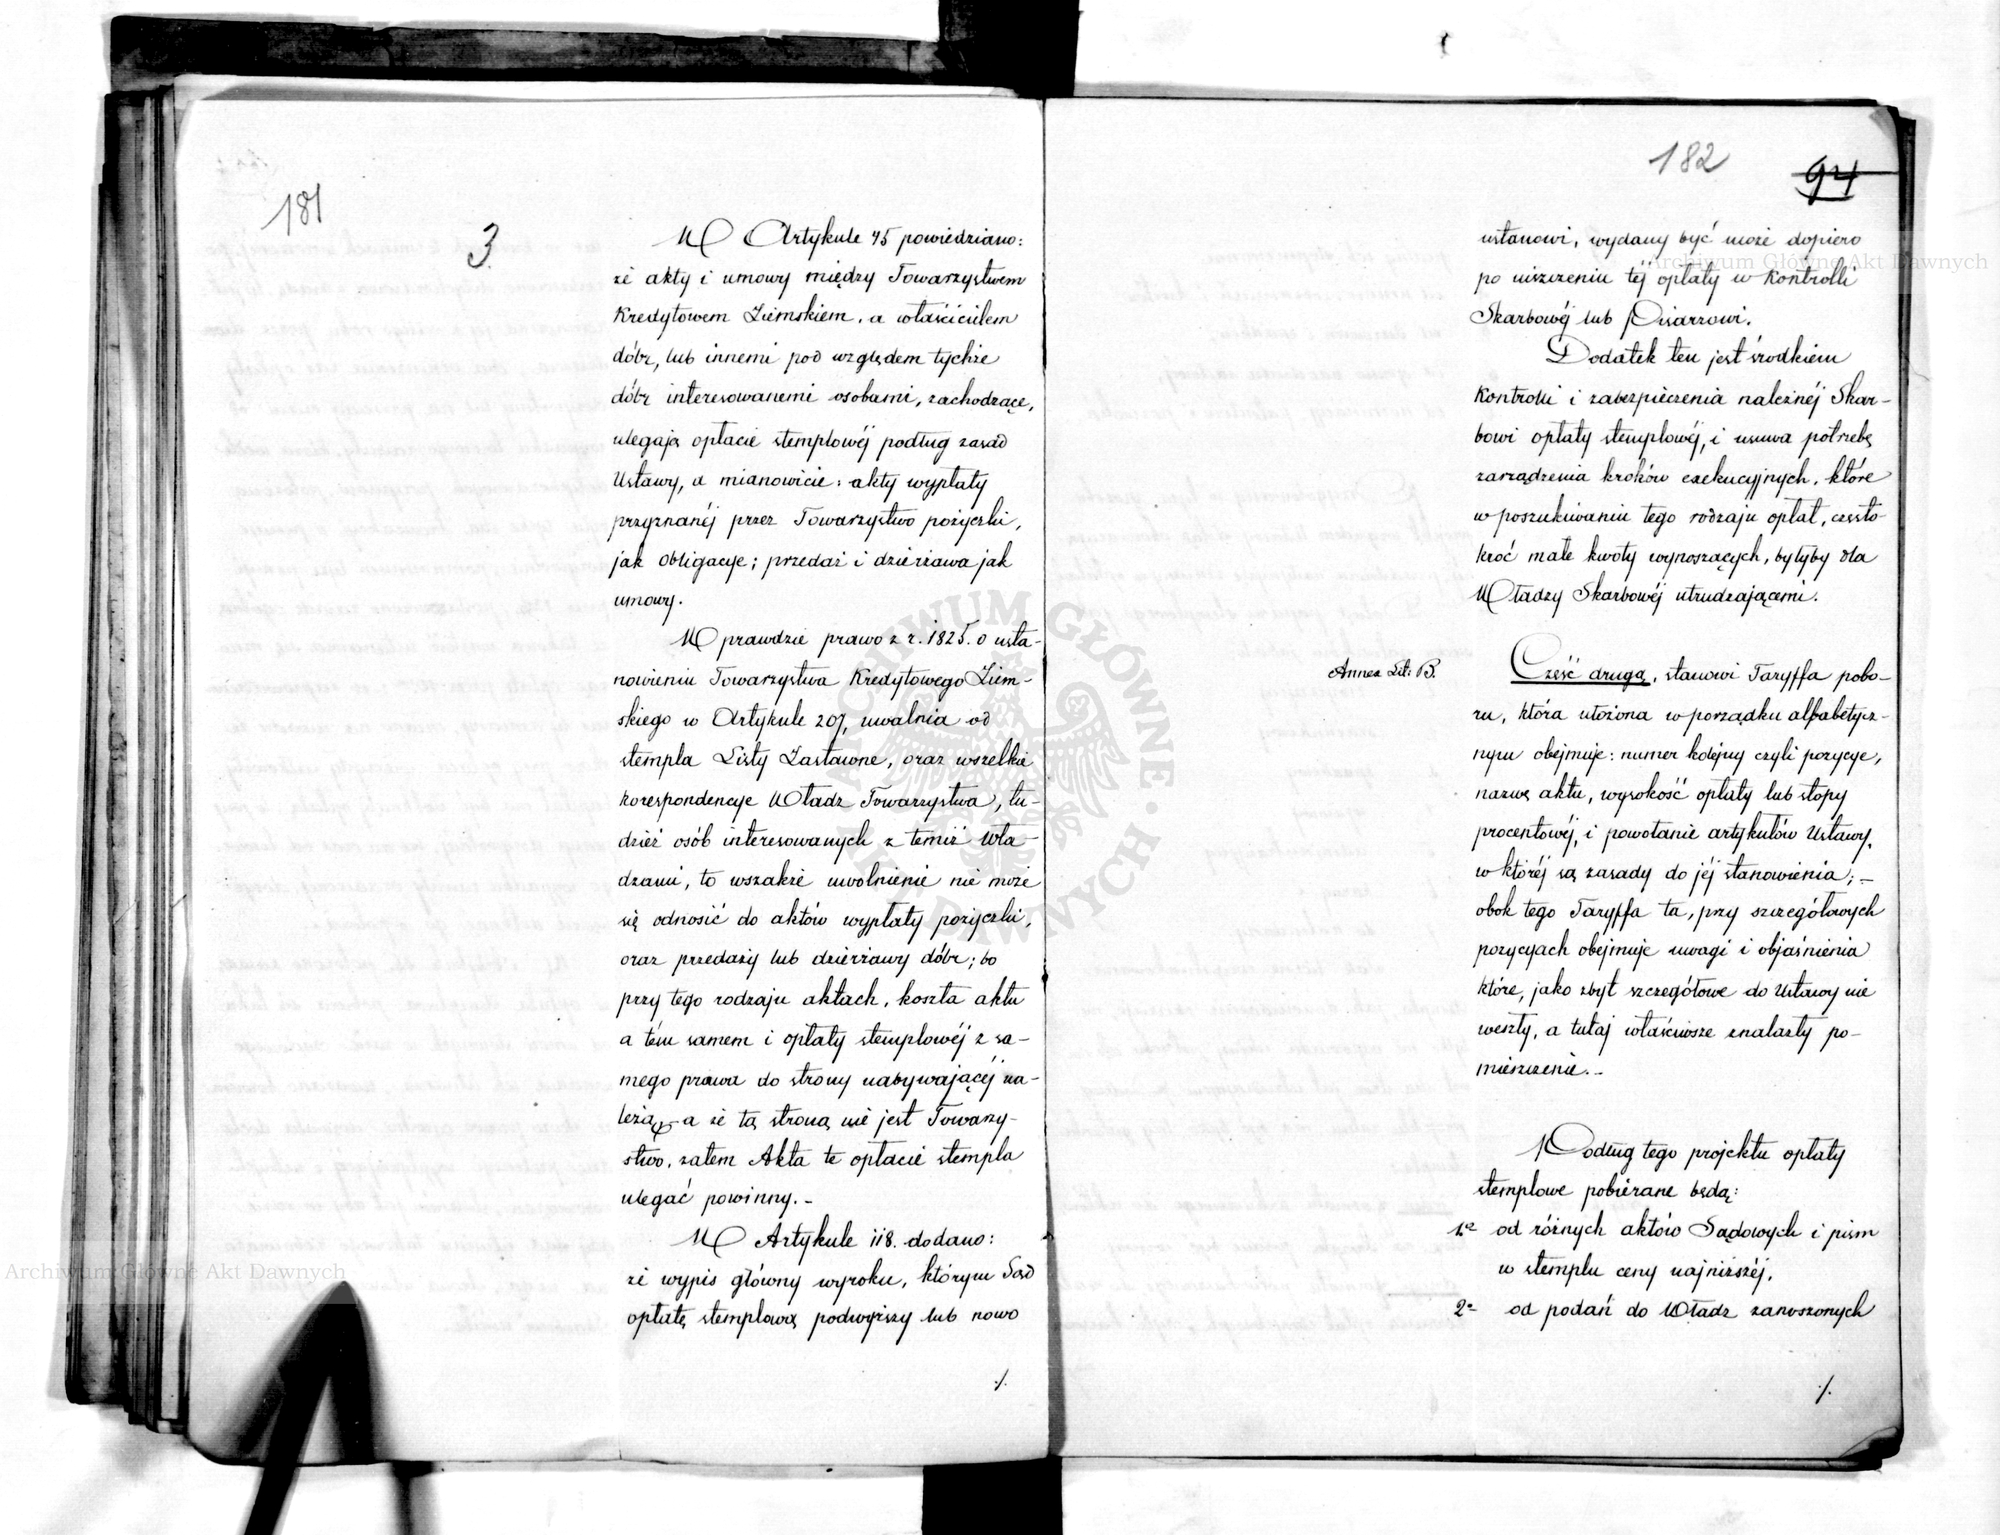 181
3.
W Artykule 45 powiedziano:
że akty i umowy między Towarzystwem
Kredytowem Ziemskiem, a właścicielem
dóbr, lub innemi pod względem tychże
dóbr interesowanemi osobami, zachodzące,
ulegają opłacie stemplowéj podług zasad
Ustawy, a mianowicie: akty wypłaty
przyznanéj przez Towarzystwo pożyczki,
jak obligacye; przedaż i dzierżawa jak
umowy.
Wprawdzie prawo z r. 1825. o usta-
nowieniu Towarzystwa Kredytowego Ziem-
skiego w Artykule 207, uwalnia od
stempla Listy Zastawne, oraz wszelkie
korespondencye Władz Towarzystwa, tu-
dzież osób interesowanych z temiż Wła-
dzami, to wszakże uwolnienie nie może
się odnosić do aktów wypłaty pożyczki,
oraz przedaży lub dzierżawy dóbr; bo
przy tego rodzaju aktach, koszta aktu
a tém samem i opłaty stemplowéj z sa-
mego prawa do strony nabywającéj na-
leżą, a że tą stroną nie jest Towarzy-
stwo, zatem Akta te opłacie stempla
ulegać powinny.-
W Artykule 118. dodano:
że wypis główny wyroku, którym Sąd
opłatę stemplową podwyższy lub nowo
./.
182
94
ustanowi, wydany być może dopiero
po uiszczeniu téj opłaty w Kontrolli
Skarbowéj lub Pisarzowi.
Dodatek ten jest środkiem
Kontrolli i zabezpieczenia należnéj Skar-
bowi opłaty stemplowéj, i usuwa potrzebę
zarządzenia kroków exekucyjnych, które
w poszukiwaniu tego rodzaju opłat, często-
kroć małe kwoty wynoszących, byłyby dla
Władzy Skarbowéj utrudzającemi.
Annex Lit: B.
Część druga, stanowi Taryffa pobo-
ru, która ułożona w porządku alfabetycz-
nym obejmuje: numer kolejny czyli pozycye,
nazwę aktu, wysokość opłaty lub stopy
procentowéj, i powołanie artykułów Ustawy,
w któréj są zasady do jéj stanowienia;-
obok tego Taryffa ta, przy szczegółowych
pozycyach obejmuje uwagi i objaśnienia
które, jako zbyt szczegółowe do Ustawy nie
weszły, a tutaj właściwsze znalazły po-
mieszczenie.-
Podług tego projektu opłaty
stemplowe pobierane będą:
1º od różnych aktów Sądowych i pism
w stemplu ceny najniższéj,
2º od podań do Władz zanoszonych
./.
Archiwum Główne Akt Dawnych
Archiwum Główne Akt Dawnych
ARCHIWUM GŁÓWNE · AKT DAWNYCH ·